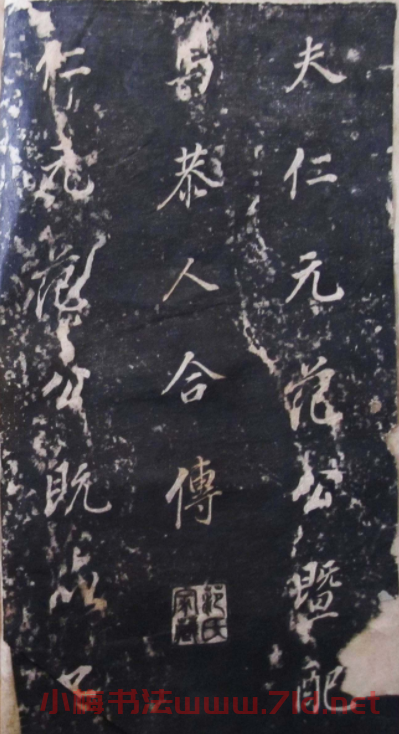 夫仁元范公暨配
馬恭人合傳
范氏家藏
仁元范公既
小梅书法www.7ld.net